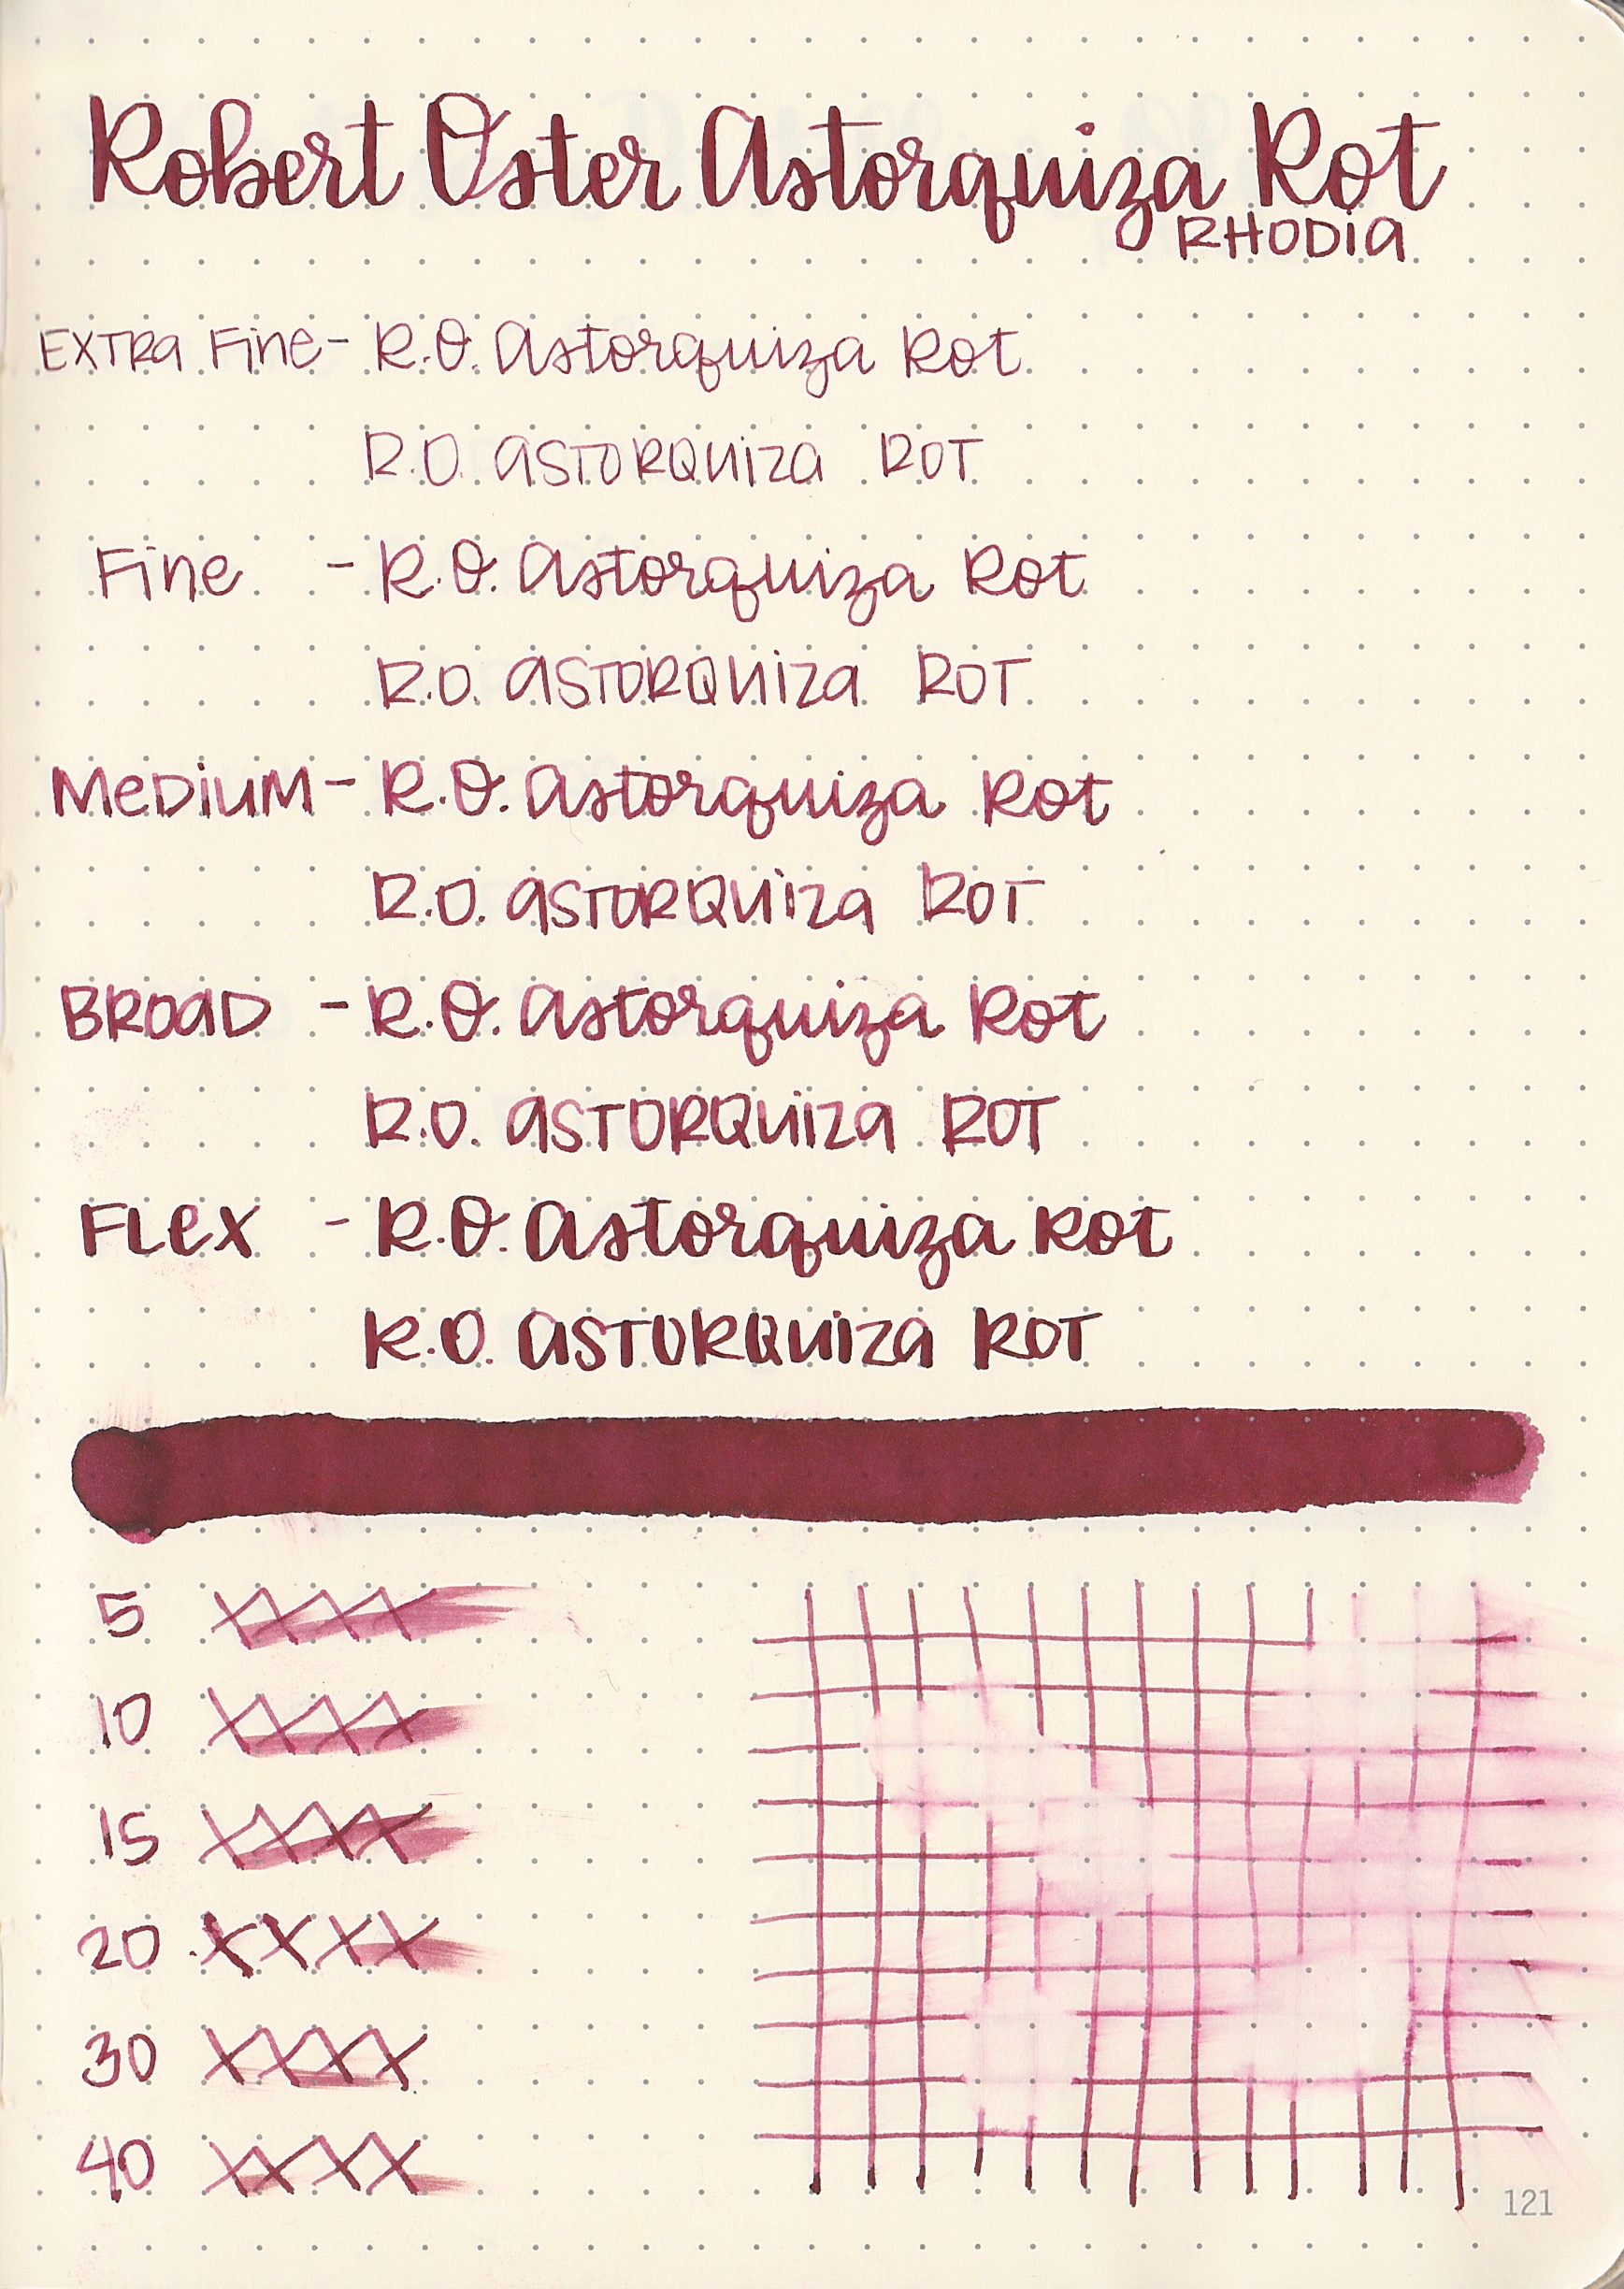 Robert Oster Astorquiza Rot
RHODIA
EXTRA FINE - R.O. Astorquiza Rot
R.O. ASTORQUIZA ROT
Fine - R.O. Astorquiza Rot
R.O. ASTORQUIZA ROT
MEDIUM - R.O. Astorquiza Rot
R.O. ASTORQUIZA ROT
BROAD - R.O. Astorquiza Rot
R.O. ASTORQUIZA ROT
FLEX - R.O. Astorquiza Rot
R.O. ASTORQUIZA ROT
5 XXXX
10 XXXX
15 XXXX
20 XXXX
30 XXXX
40 XXXX
121